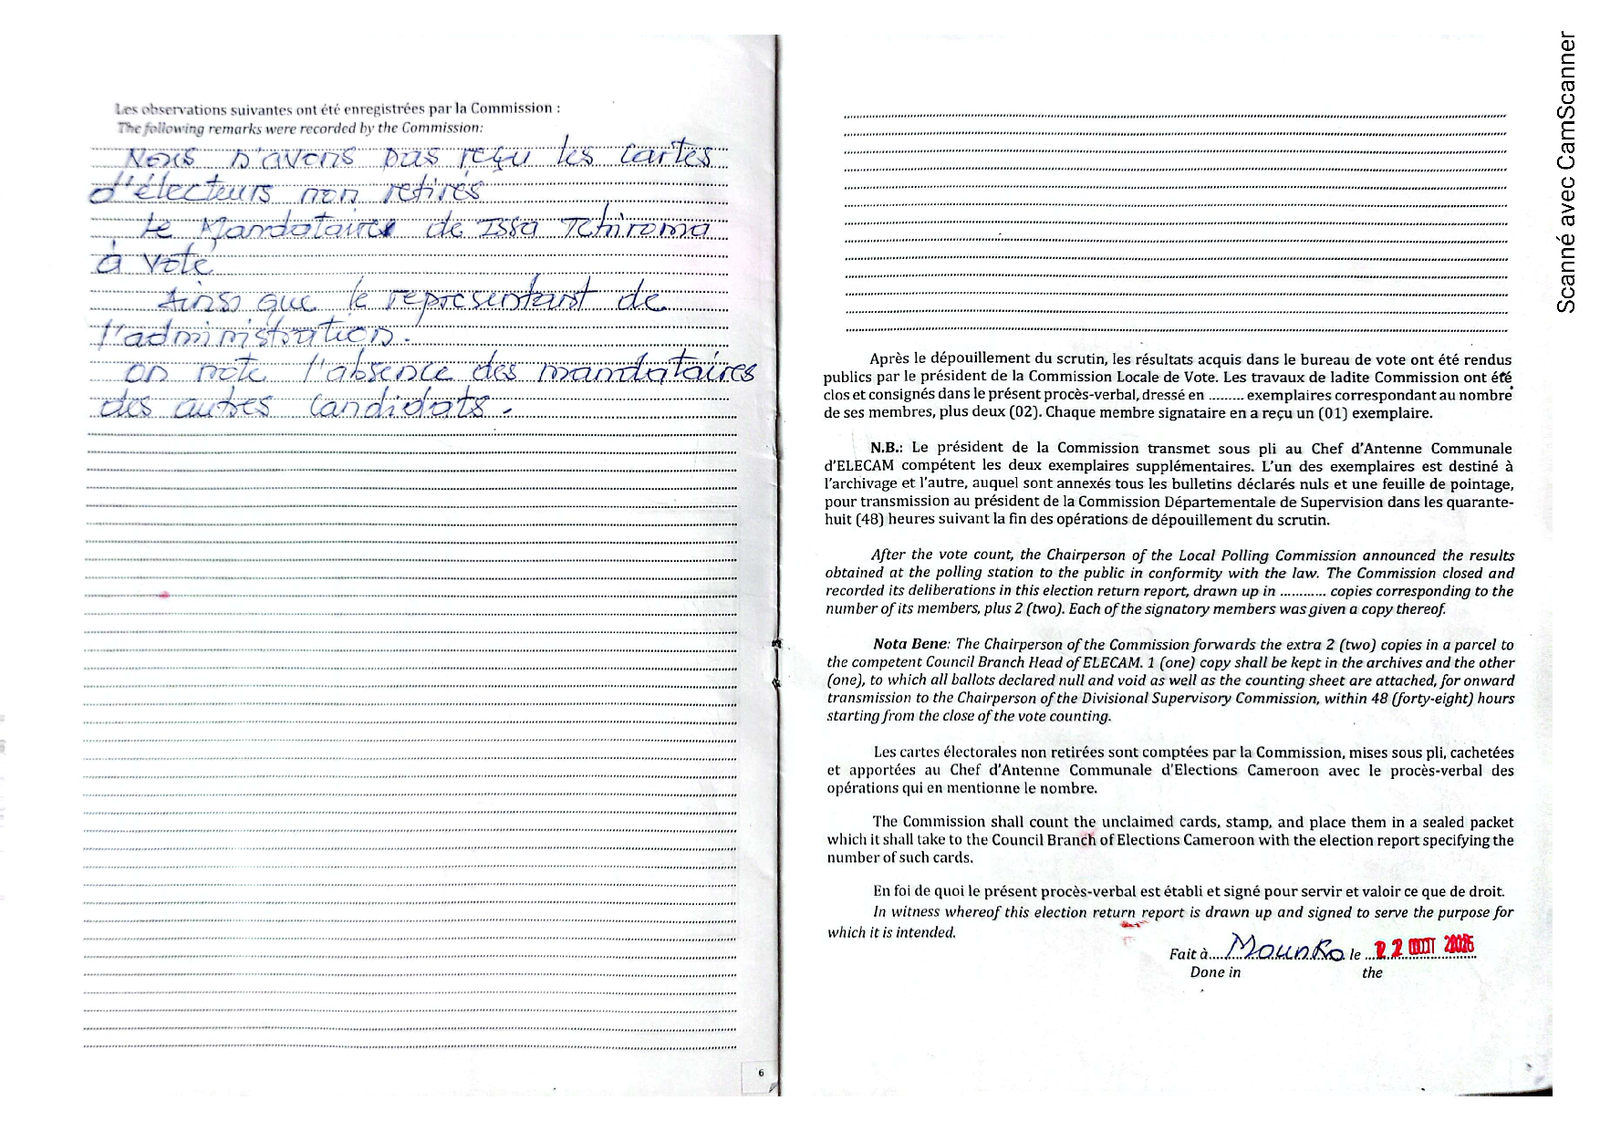 Les observations suivantes ont été enregistrées par la Commission :
The following remarks were recorded by the Commission:
Nous n'avons pas reçu les cartes
d'électeurs non retirés
Le Mandataire de Issa Tchiroma
à voté
Ainsi que le representant de
l'administration.
on note l'absence des mandataires
des autres candidats.
6
Après le dépouillement du scrutin, les résultats acquis dans le bureau de vote ont été rendus
publics par le président de la Commission Locale de Vote. Les travaux de ladite Commission ont été
clos et consignés dans le présent procès-verbal, dressé en ......... exemplaires correspondant au nombre
de ses membres, plus deux (02). Chaque membre signataire en a reçu un (01) exemplaire.
N.B.: Le président de la Commission transmet sous pli au Chef d'Antenne Communale
d'ELECAM compétent les deux exemplaires supplémentaires. L'un des exemplaires est destiné à
l'archivage et l'autre, auquel sont annexés tous les bulletins déclarés nuls et une feuille de pointage,
pour transmission au président de la Commission Départementale de Supervision dans les quarante-
huit (48) heures suivant la fin des opérations de dépouillement du scrutin.
After the vote count, the Chairperson of the Local Polling Commission announced the results
obtained at the polling station to the public in conformity with the law. The Commission closed and
recorded its deliberations in this election return report, drawn up in ............ copies corresponding to the
number of its members, plus 2 (two). Each of the signatory members was given a copy thereof.
Nota Bene: The Chairperson of the Commission forwards the extra 2 (two) copies in a parcel to
the competent Council Branch Head of ELECAM. 1 (one) copy shall be kept in the archives and the other
(one), to which all ballots declared null and void as well as the counting sheet are attached, for onward
transmission to the Chairperson of the Divisional Supervisory Commission, within 48 (forty-eight) hours
starting from the close of the vote counting.
Les cartes électorales non retirées sont comptées par la Commission, mises sous pli, cachetées
et apportées au Chef d'Antenne Communale d'Elections Cameroon avec le procès-verbal des
opérations qui en mentionne le nombre.
The Commission shall count the unclaimed cards, stamp, and place them in a sealed packet
which it shall take to the Council Branch of Elections Cameroon with the election report specifying the
number of such cards.
En foi de quoi le présent procès-verbal est établi et signé pour servir et valoir ce que de droit.
In witness whereof this election return report is drawn up and signed to serve the purpose for
which it is intended.
Fait à.... Mounko le ...
Done in the
Scanné avec CamScanner